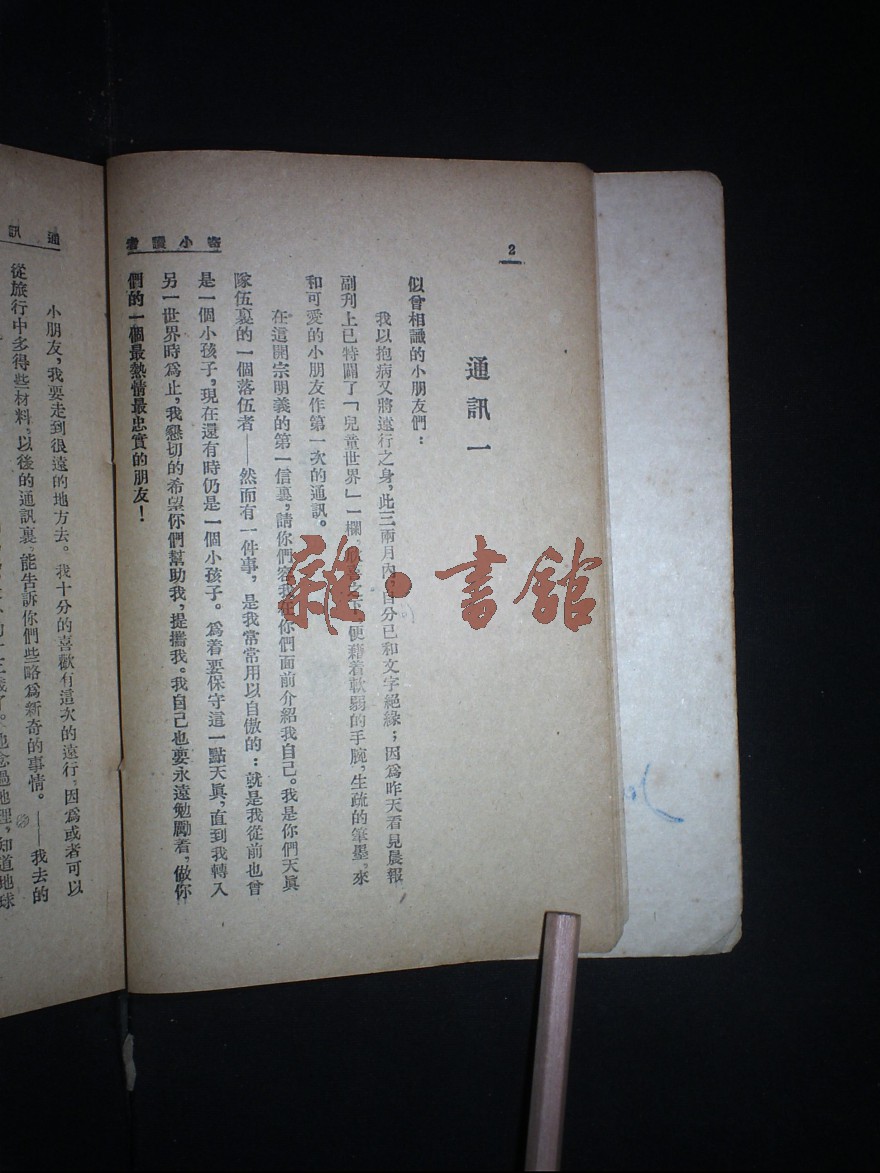 2
寄小讀者
通訊一
似曾相識的小朋友們：
我以抱病又將遠行之身，此三兩月內，自分已和文字絕緣；因爲昨天看見晨報
副刋上已特闢了「兒童世界」一欄，欣喜之下，便藉着軟弱的手腕，生疏的筆墨，來
和可愛的小朋友作第一次的通訊。
在這開宗明義的第一信裏，請你們容我在你們面前介紹我自己。我是你們天眞
隊伍裏的一個落伍者——然而有一件事，是我常常用以自傲的：就是我從前也曾
是一個小孩子，現在還有時仍是一個小孩子。爲着要保守這一點天眞，直到我轉入
另一世界時爲止，我懇切的希望你們幫助我，提攜我。我自己也要永遠勉勵着，做你
們的一個最熱情最忠實的朋友！
通訊
小朋友，我要走到很遠的地方去。我十分的喜歡有這次的遠行，因爲或者可以
從旅行中多得些材料，以後的通訊裏，能告訴你們些略爲新奇的事情。——我去的
也念過地理，知道地球
雜·書館